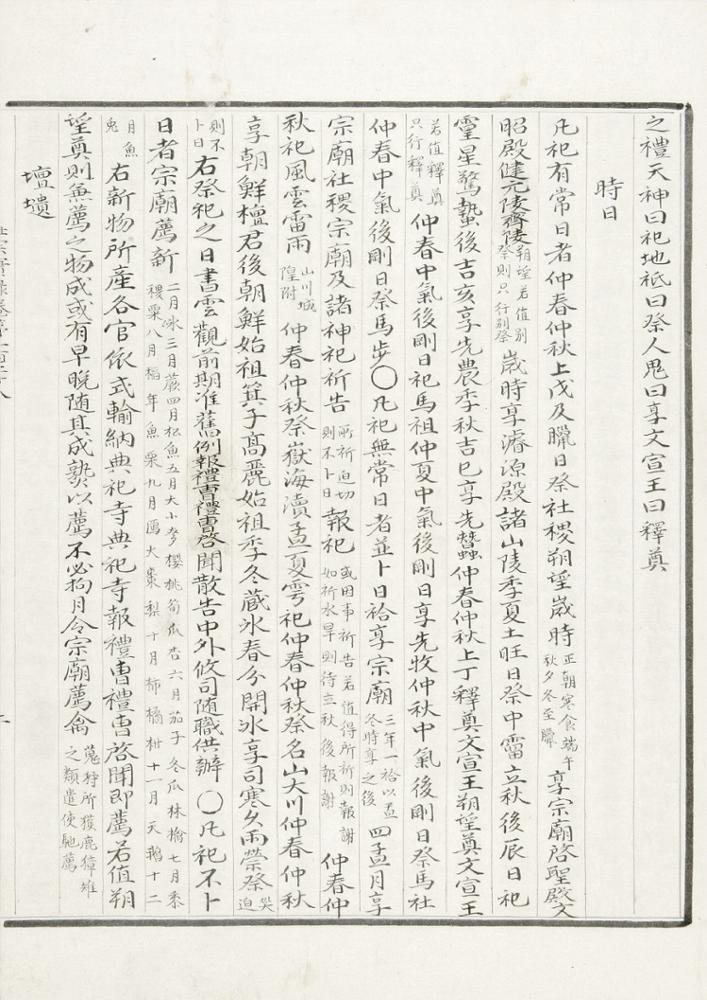 之禮天神曰祀地祗曰祭人鬼曰享文宣王曰釋奠
時日
凡祀有常日者仲春仲秋上戊及臘日祭社稷朔望歲時正朝寒食端午秋夕冬至臘享宗廟啓聖殿文
昭殿健元陵齊陵朔望若值別祭則只行別祭歲時享濬源殿諸山陵季夏土旺日祭中霤立秋後辰日祀
靈星驚蟄後吉亥享先農季秋吉巳享先蠶仲春仲秋上丁釋奠文宣王朔望奠文宣王
若值釋奠只行釋奠仲春中氣後剛日祀馬祖仲夏中氣後剛日享先牧仲秋中氣後剛日祭馬社
仲春中氣後剛日祭馬步〇凡祀無常日者並卜日祫享宗廟三年一祫以孟冬時享之後四孟月享
宗廟社稷宗廟及諸神祀祈告所祈迫切則不卜日報祀或因事祈告若值得所祈則報謝如祈水旱則待立秋後報謝仲春仲
秋祀風雲雷雨山川城隍附仲春仲秋祭嶽海瀆孟夏雩祀仲春仲秋祭名山大川仲春仲秋
享朝鮮檀君後朝鮮始祖箕子高麗始祖季冬藏氷春分開氷享司寒久雨禜祭災迫
則不卜日右祭祀之日書雲觀前期准舊例報禮曹禮曹啓聞散告中外攸司随職供辦〇凡祀不卜
日者宗廟薦新二月冰三月蕨四月松魚五月大小麥櫻桃筍瓜杏六月茄子冬瓜林檎七月黍稷粟八月稻年魚栗九月鴈大棗梨十月柿橘柑十一月天鵝十二
月魚兎右新物所產各官依式輸納典祀寺典祀寺報禮曹禮曹啓聞即薦若值朔
望奠則兼薦之物成或有早晩随其成熟以薦不必拘月令宗廟薦禽蒐狩所獲鹿獐雉之類遣使馳薦
壇壝